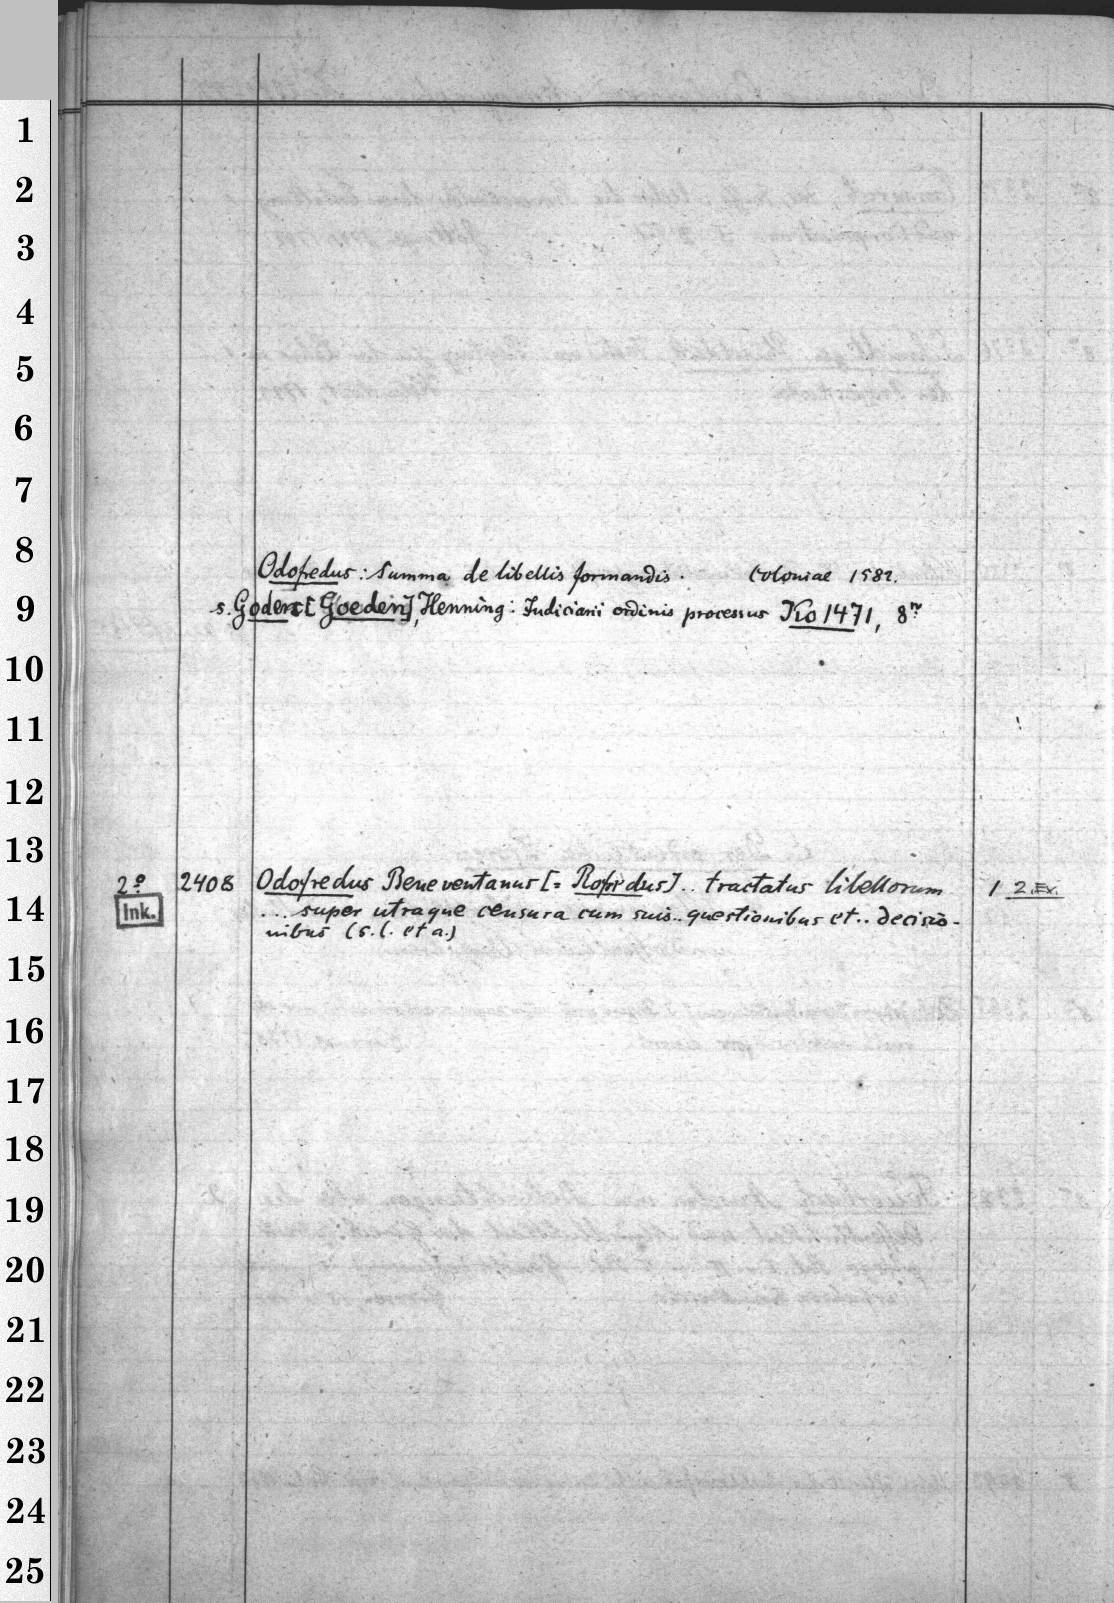 1
2
3
4
5
6
7
8
Odofredus: Summa de libellis formandis. Coloniae 1582.
9
s. Godenc [Goeden], Henning: Iudiciarii ordinis processus Ko 1471, 8°
10
11
12
13
2° 2408 Odofredus Beneventanus [= Rofridus] .. tractatus libellorum / 2. Ex.
Ink.
14
... super utraque censura cum suis .. questionibus et .. decisio-
nibus (s. l. et a.)
15
16
17
18
19
20
21
22
23
24
25